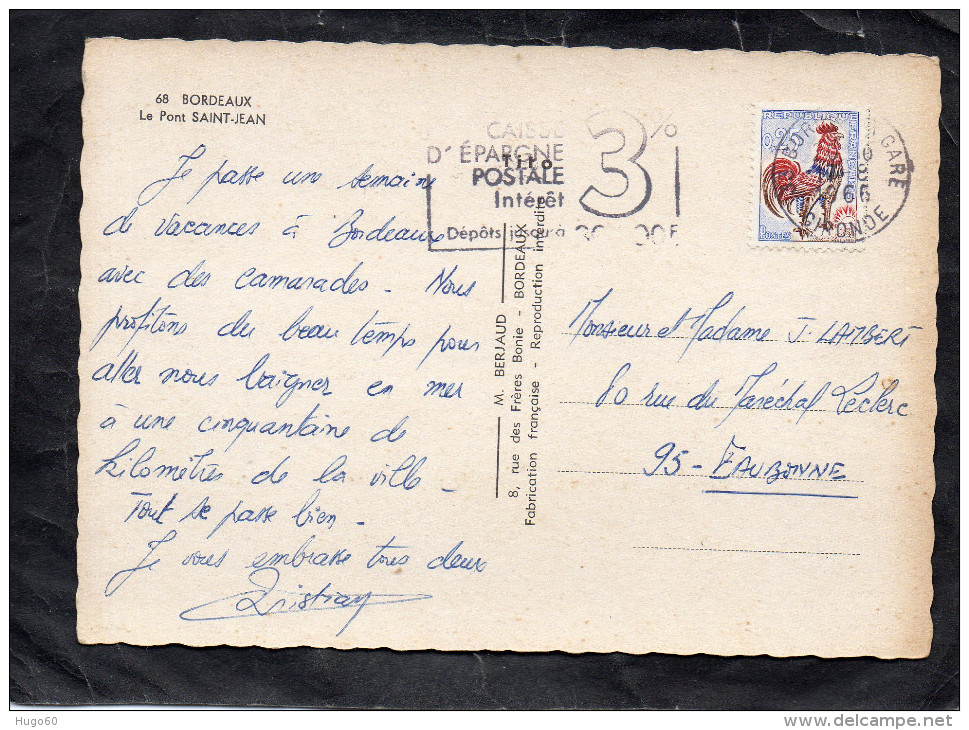 68 BORDEAUX
Le Pont SAINT-JEAN
CAISSE
D'ÉPARGNE
Tito
POSTALE
Intérêt
3%
Dépôts jusqu'à
REPUBLIQUE FRANCAISE
POSTES
GARE
GIRONDE
Je passe une semaine
de vacances à Bordeaux
avec des camarades - Nous
profitons du beau temps pour
aller nous baigner en mer
à une cinquantaine de
kilomètres de la ville -
Tout se passe bien -
Je vous embrasse tous deux
M. BERJAUD
8, rue des Frères Bonie - BORDEAUX
Fabrication française - Reproduction interdite
Monsieur et Madame J. LAMBERT
80 rue du Maréchal Leclerc
95 - EAUBONNE
Hugo60
delcampe.net